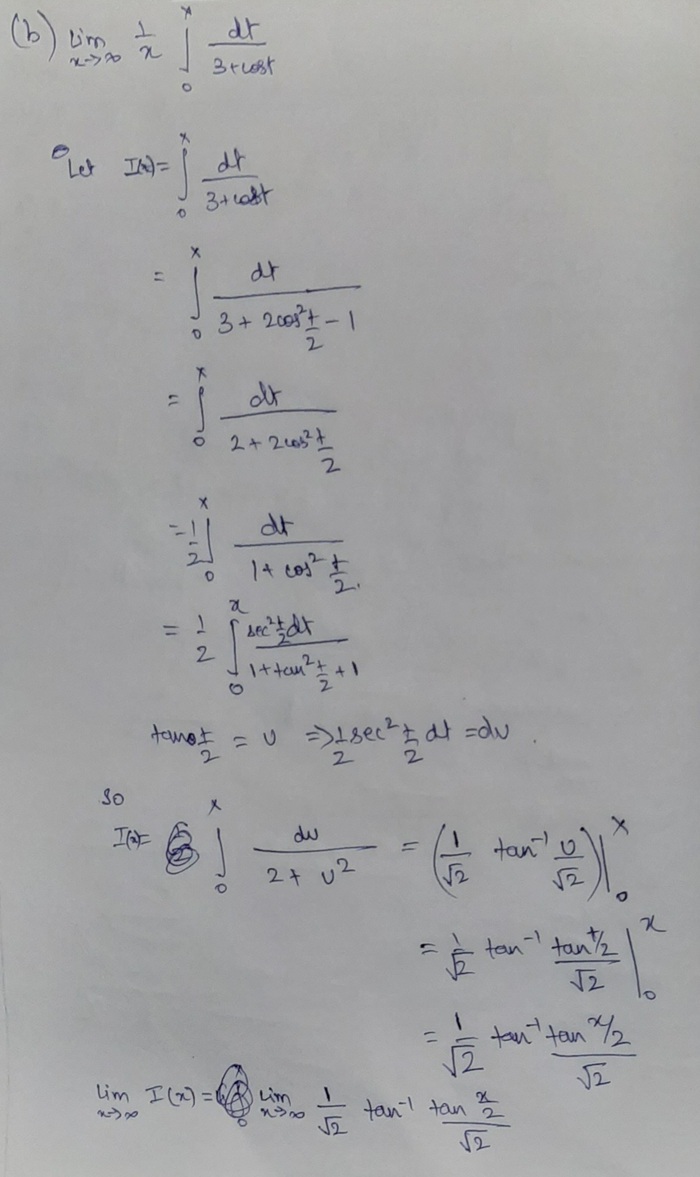 (b) lim x→∞ 1/x ∫₀ˣ dt/(3+cost)
Let I(x) = ∫₀ˣ dt/(3+cost)
= ∫₀ˣ dt/(3 + 2cos² t/2 − 1)
= ∫₀ˣ dt/(2 + 2cos² t/2)
= 1/2 ∫₀ˣ dt/(1 + cos² t/2).
= 1/2 ∫₀ˣ sec² t/2 dt/(1 + tan² t/2 + 1)
tan t/2 = u ⇒ 1/2 sec² t/2 dt = du.
So
I(x) = ∫₀ˣ du/(2 + u²) = (1/√2 tan⁻¹ u/√2)|₀ˣ
= 1/√2 tan⁻¹ (tan t/2)/√2 |₀ˣ
= 1/√2 tan⁻¹ (tan x/2)/√2
lim x→∞ I(x) = lim x→∞ 1/√2 tan⁻¹ (tan x/2)/√2